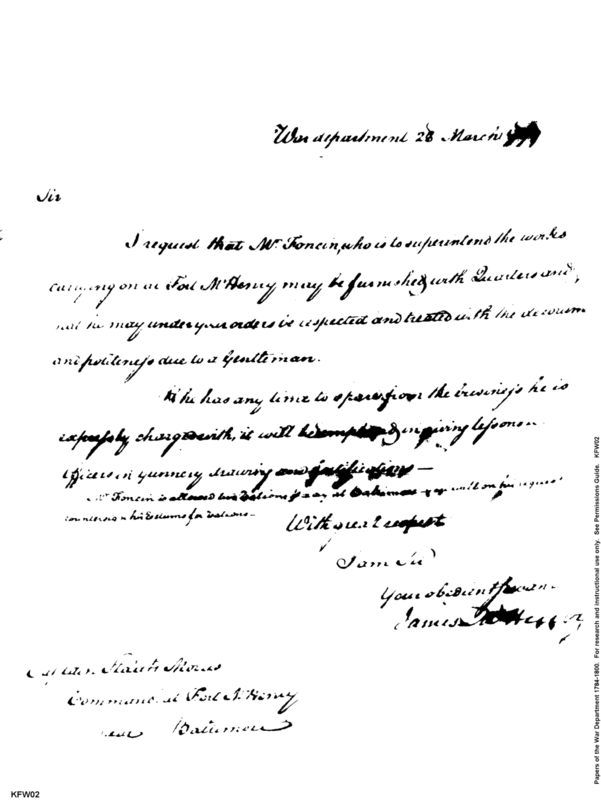 War department 28 March
Sir
I request that Mr. Foncin, who is to superintend the works
carrying on at Fort McHenry may be furnished with Quarters and
that he may under your orders be respected and treated with the decorum
and politeness due to a Gentleman.
If he has any time to spare from the business he is
expressly charged with, it will be employed in giving lessons
officers in gunnery drawing and fortification —
Mr. Foncin is allowed two rations p day at Baltimore you will on his request
countersign his Returns for rations —
With great respect
I am Sir
Your obedient servan
James McHenry
Captain Staats Morris
Command at Fort McHenry
near Baltimore
KFW02
Papers of the War Department 1784-1800. For research and instructional use only. See Permissions Guide. KFW02